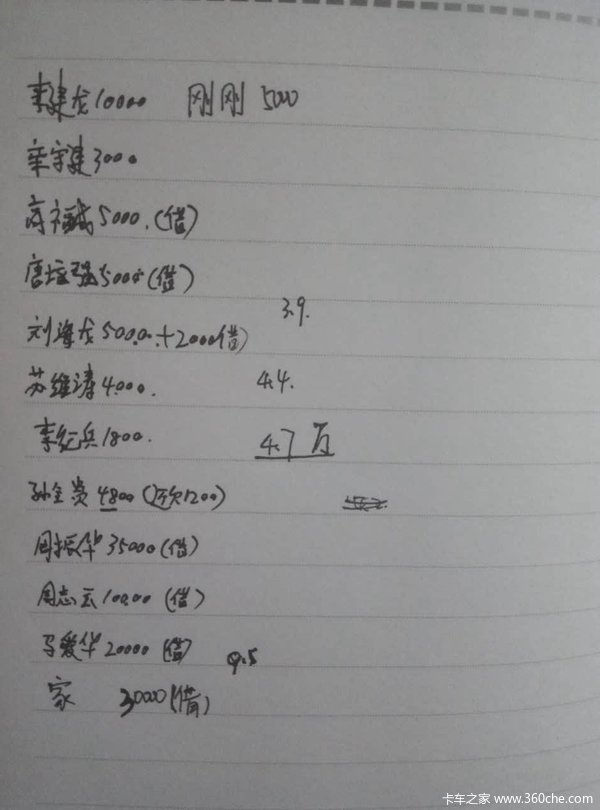 李建龙10000 刚刚 5000
辛宇建3000
高福诚5000.(借)
唐培强5000(借)
3.9.
刘海龙5000.+2000(借)
苏维涛4000. 4.4.
李纪兵1800. 4.7万
孙全贵4800(还欠1200)
周振华35000(借)
周志云10000(借)
马爱华20000(借) 9.5
家 30000(借)
卡车之家 www.360che.com